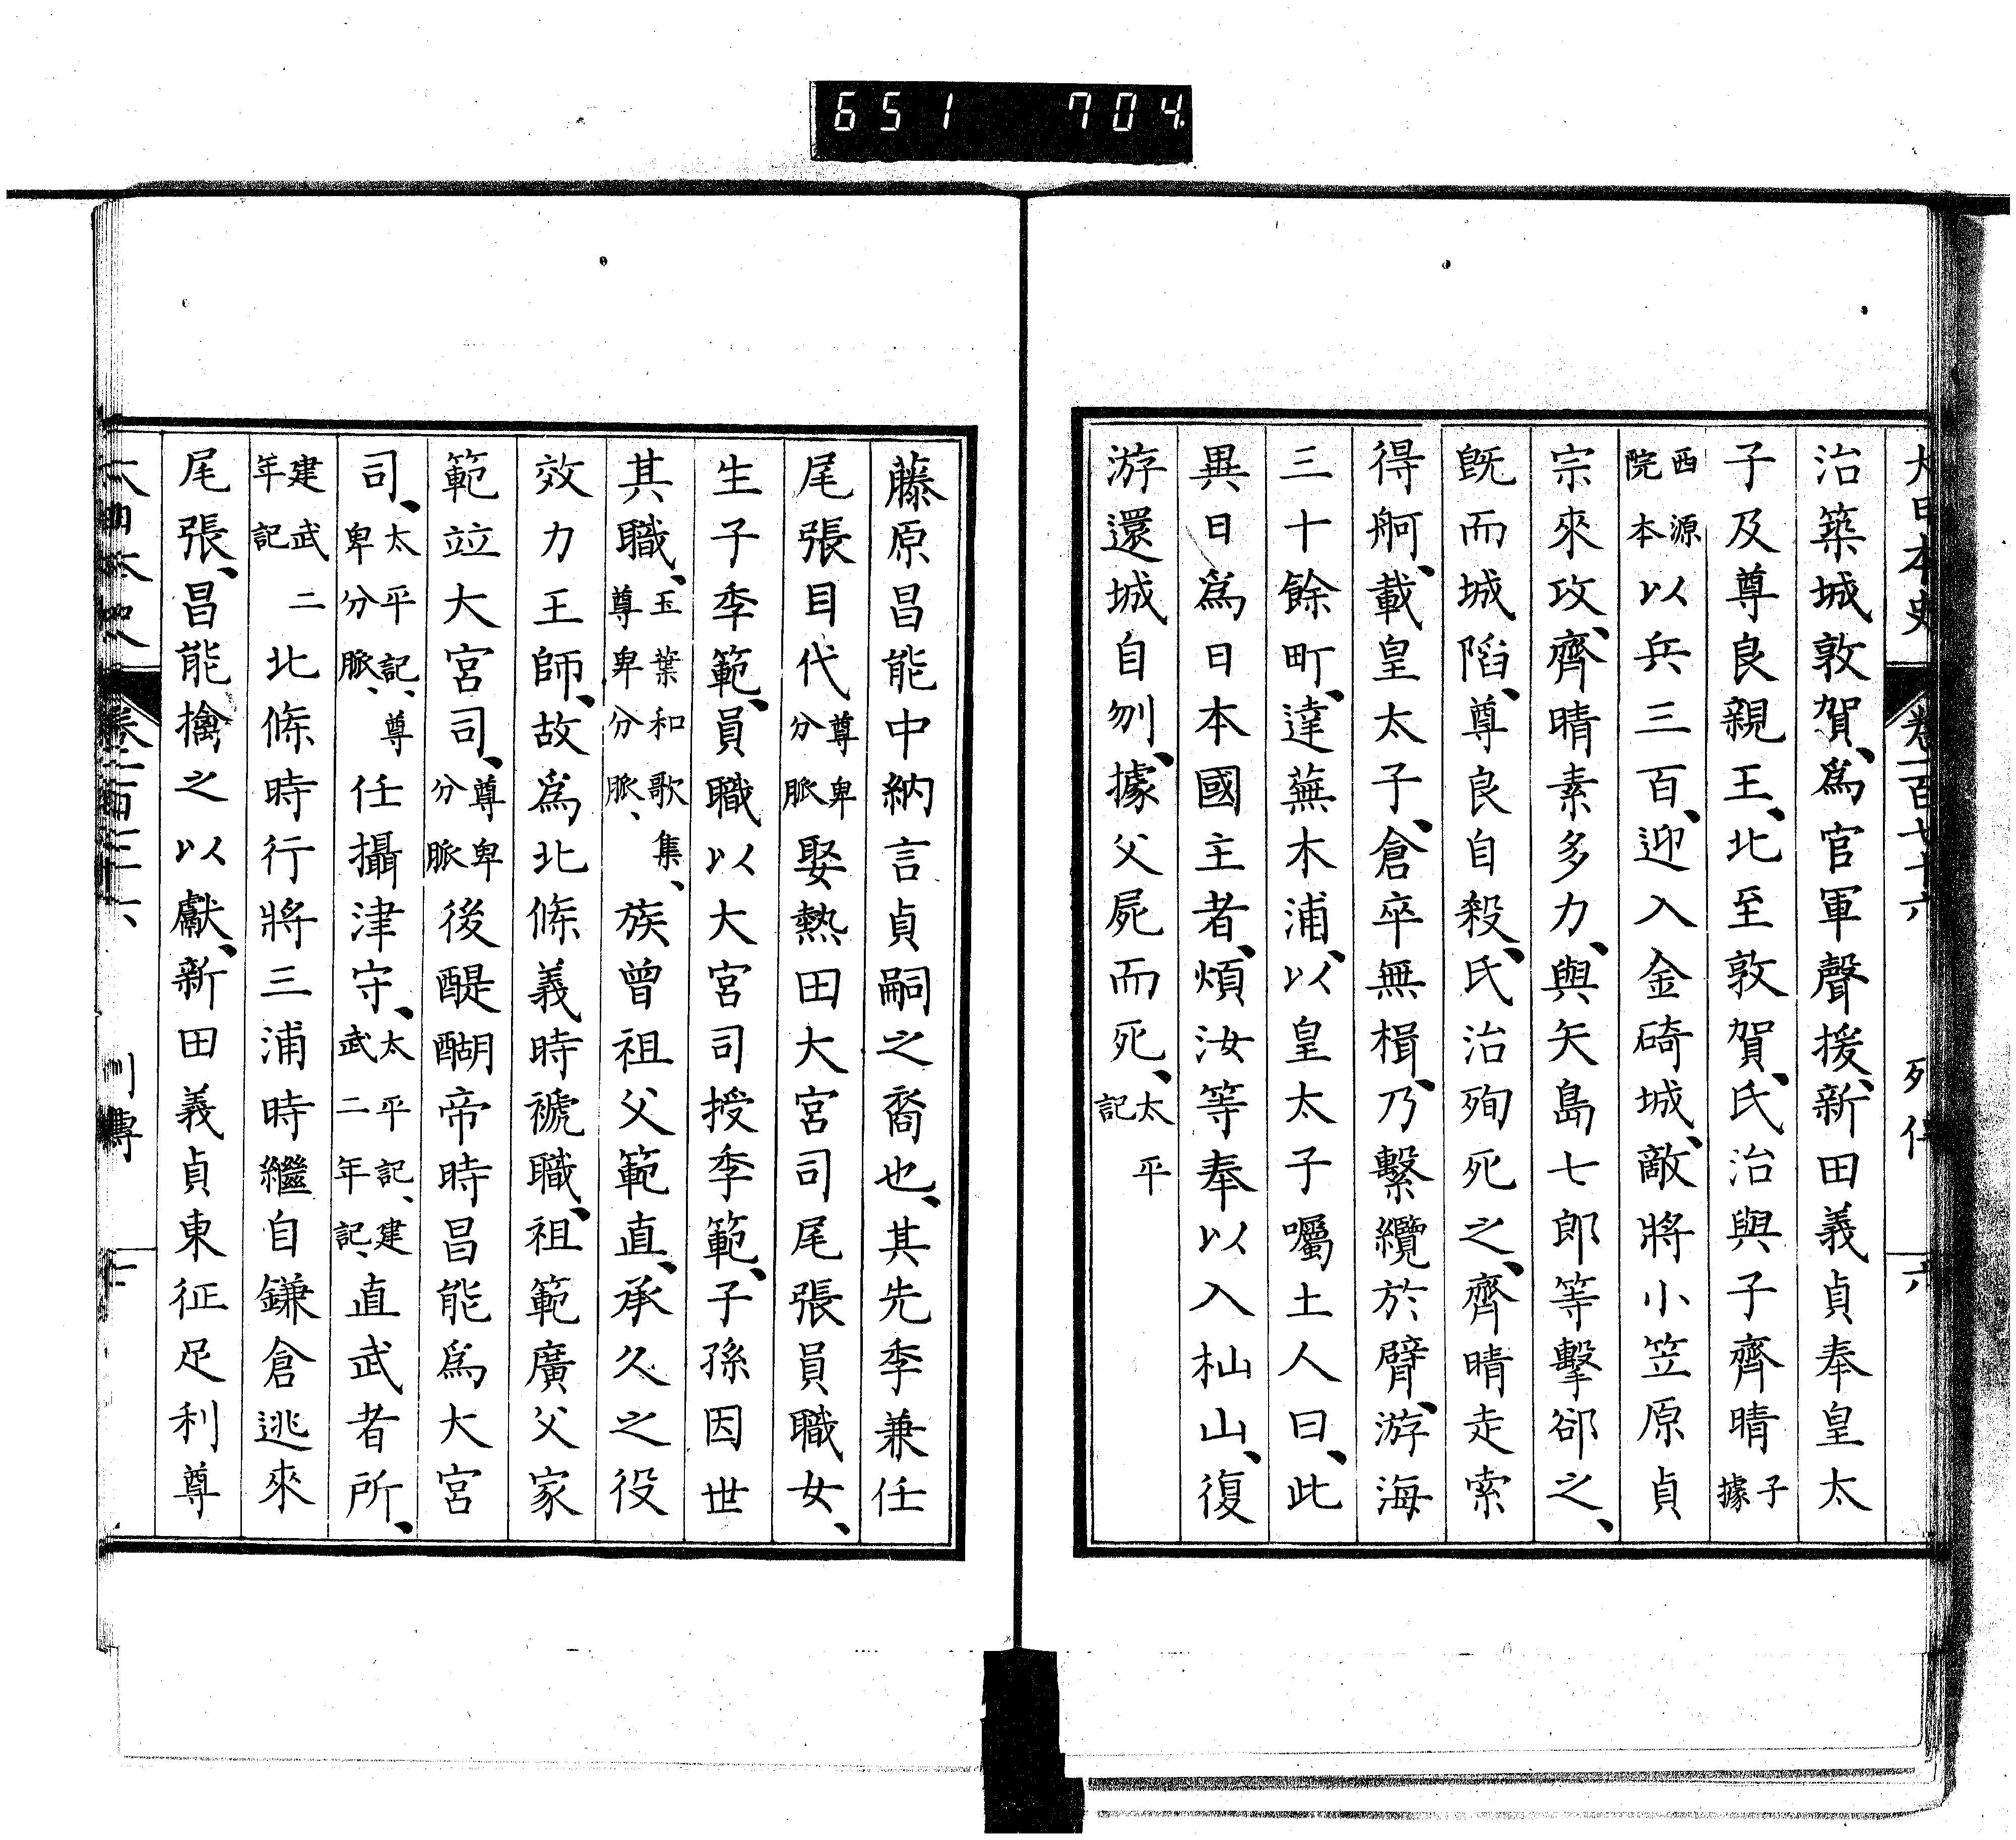 651 704
大日本史 卷一百七十六 列傳 六
治築城敦賀、爲官軍聲援、新田義貞奉皇太
子及尊良親王、北至敦賀、氏治與子齊晴子據
西源院本以兵三百、迎入金碕城、敵將小笠原貞
宗來攻、齊晴素多力、與矢島七郎等擊郤之、
旣而城陷、尊良自殺、氏治殉死之、齊晴走索
得舸、載皇太子、倉卒無楫、乃繫纜於臂、游海
三十餘町、達蕪木浦、以皇太子囑土人曰、此
異日爲日本國主者、煩汝等奉以入杣山、復
游還城自刎、據父屍而死、太平記
藤原昌能中納言貞嗣之裔也、其先季兼任
尾張目代尊卑分脈娶熱田大宮司尾張員職女、
生子季範、員職以大宮司授季範、子孫因世
其職、玉葉和歌集、尊卑分脈、族曾祖父範直、承久之役
效力王師、故爲北條義時褫職、祖範廣父家
範竝大宮司、尊卑分脈後醍醐帝時昌能爲大宮
司、太平記、尊卑分脈、任攝津守、太平記、建武二年記、直武者所、
建武二年記北條時行將三浦時繼自鎌倉逃來
尾張、昌能擒之以獻、新田義貞東征足利尊